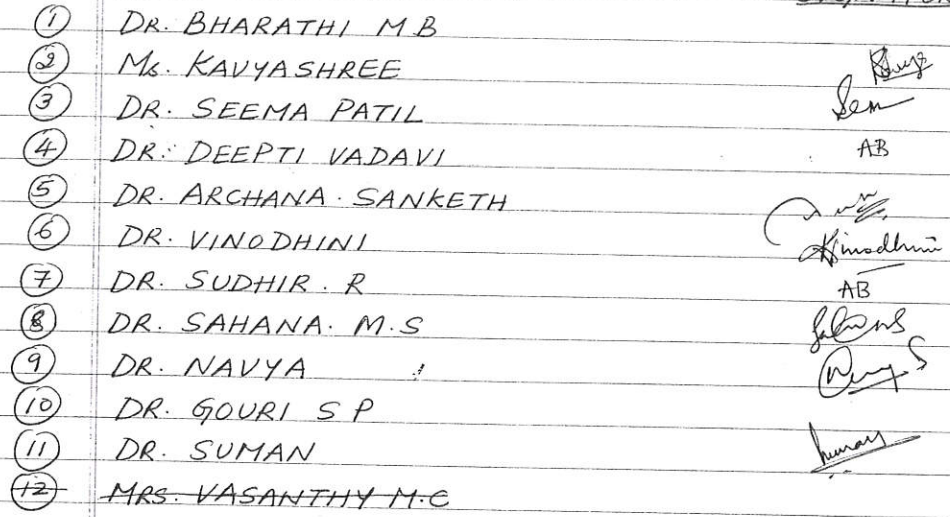 ① DR. BHARATHI M B
② Ms. KAVYASHREE
③ DR. SEEMA PATIL Sem
④ DR. DEEPTI VADAVI AB
⑤ DR. ARCHANA. SANKETH
⑥ DR. VINODHINI Vinodhini
⑦ DR. SUDHIR. R AB
⑧ DR. SAHANA. M.S
⑨ DR. NAVYA
⑩ DR. GOURI S P
⑪ DR. SUMAN
⑫ MRS. VASANTHY M.C